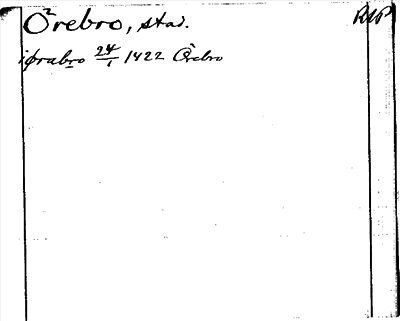 Örebro, stad. RAP
i ørabro 24/1 1422 Örebro